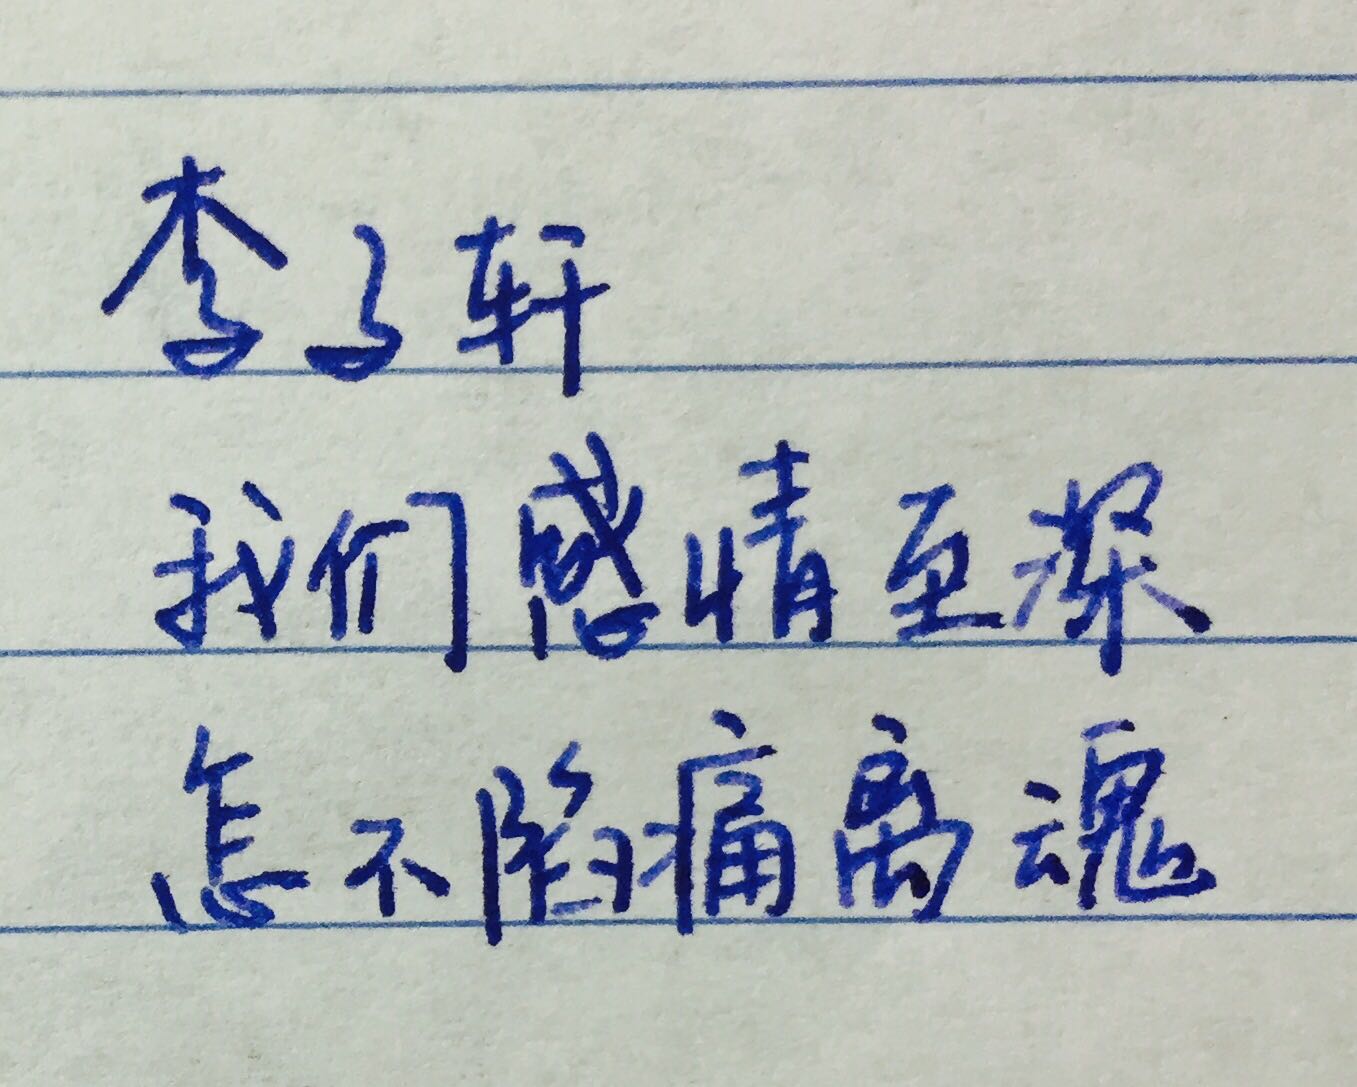 李子轩
我们感情至深
怎不陷痛离魂